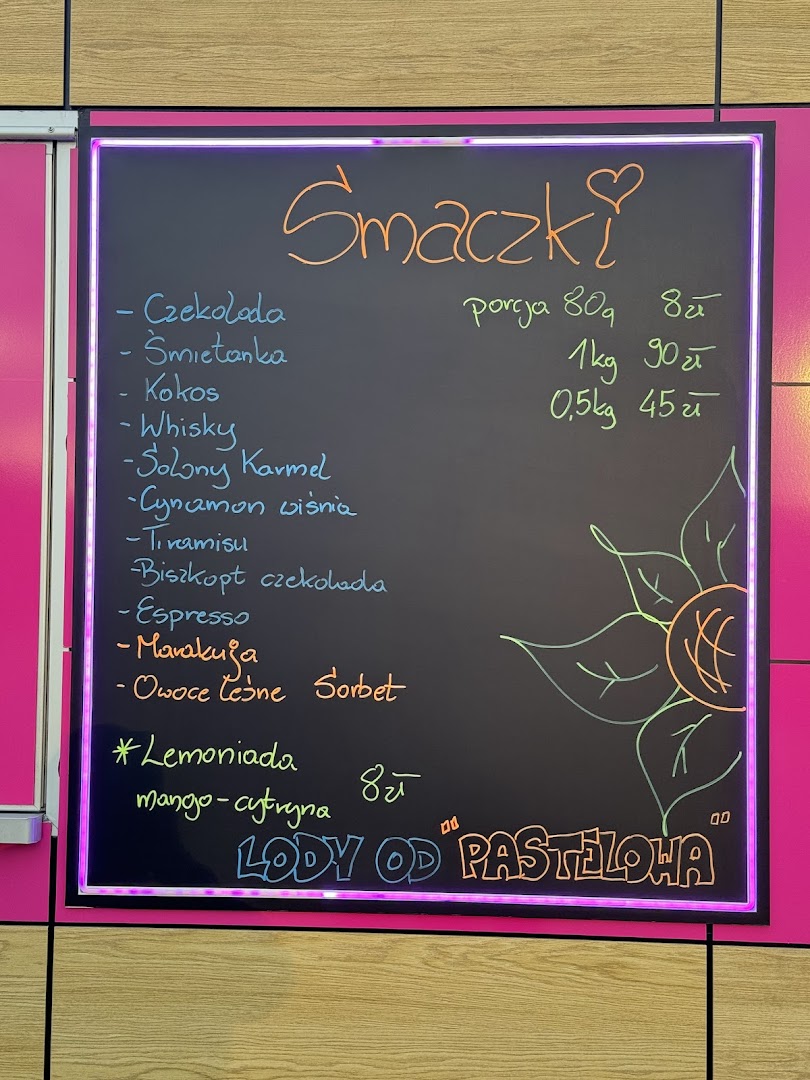 Smaczki
- Czekolada
- Śmietanka
- Kokos
- Whisky
- Solony Karmel
- Cynamon wiśnia
- Tiramisu
- Biszkopt czekolada
- Espresso
- Marakuja
- Owoce leśne Sorbet
porcja 80g 8zł
1kg 90zł
0,5kg 45zł
* Lemoniada
mango-cytryna 8zł
LODY OD "PASTELOWA"